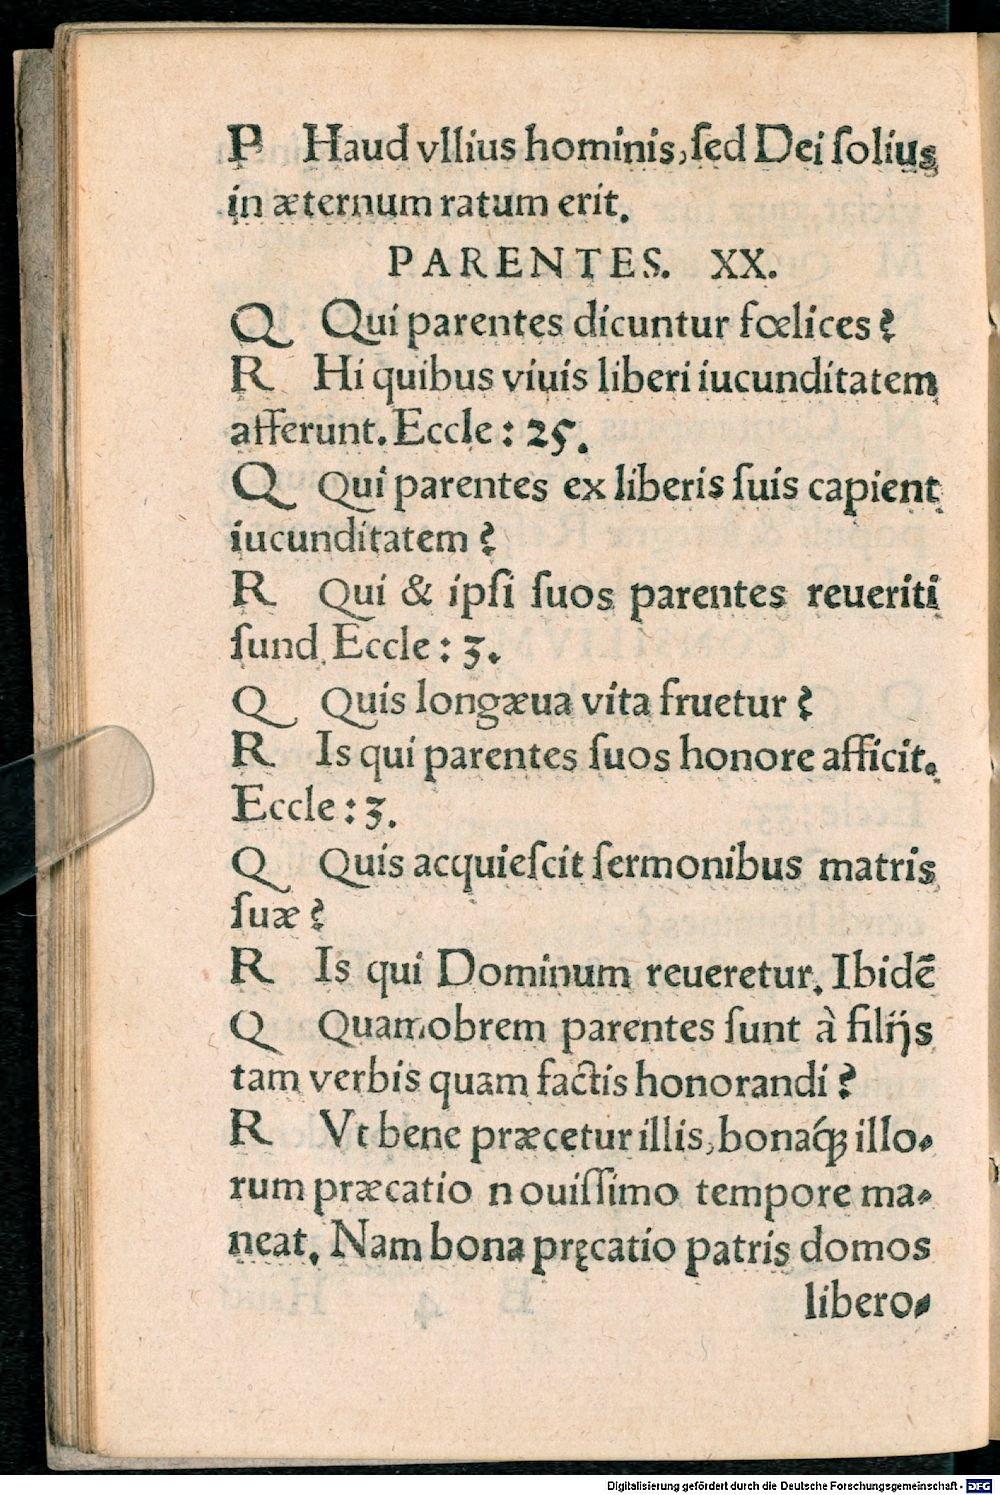 P Haud vllius hominis, ſed Dei ſolius
in æternum ratum erit.
PARENTES. XX.
Q Qui parentes dicuntur fœlices?
R Hi quibus viuis liberi iucunditatem
afferunt. Eccle: 25.
Q Qui parentes ex liberis ſuis capient
iucunditatem?
R Qui & ipſi ſuos parentes reueriti
ſund Eccle: 3.
Q Quis longæua vita fruetur?
R Is qui parentes ſuos honore afficit.
Eccle: 3.
Q Quis acquieſcit ſermonibus matris
ſuæ?
R Is qui Dominum reueretur. Ibidē
Q Quamobrem parentes ſunt à filijs
tam verbis quam factis honorandi?
R Vt bene præcetur illis, bonaq́; illo-
rum præcatio nouiſſimo tempore ma-
neat. Nam bona pręcatio patris domos
libero-
Digitalisierung gefördert durch die Deutsche Forschungsgemeinschaft - DFG